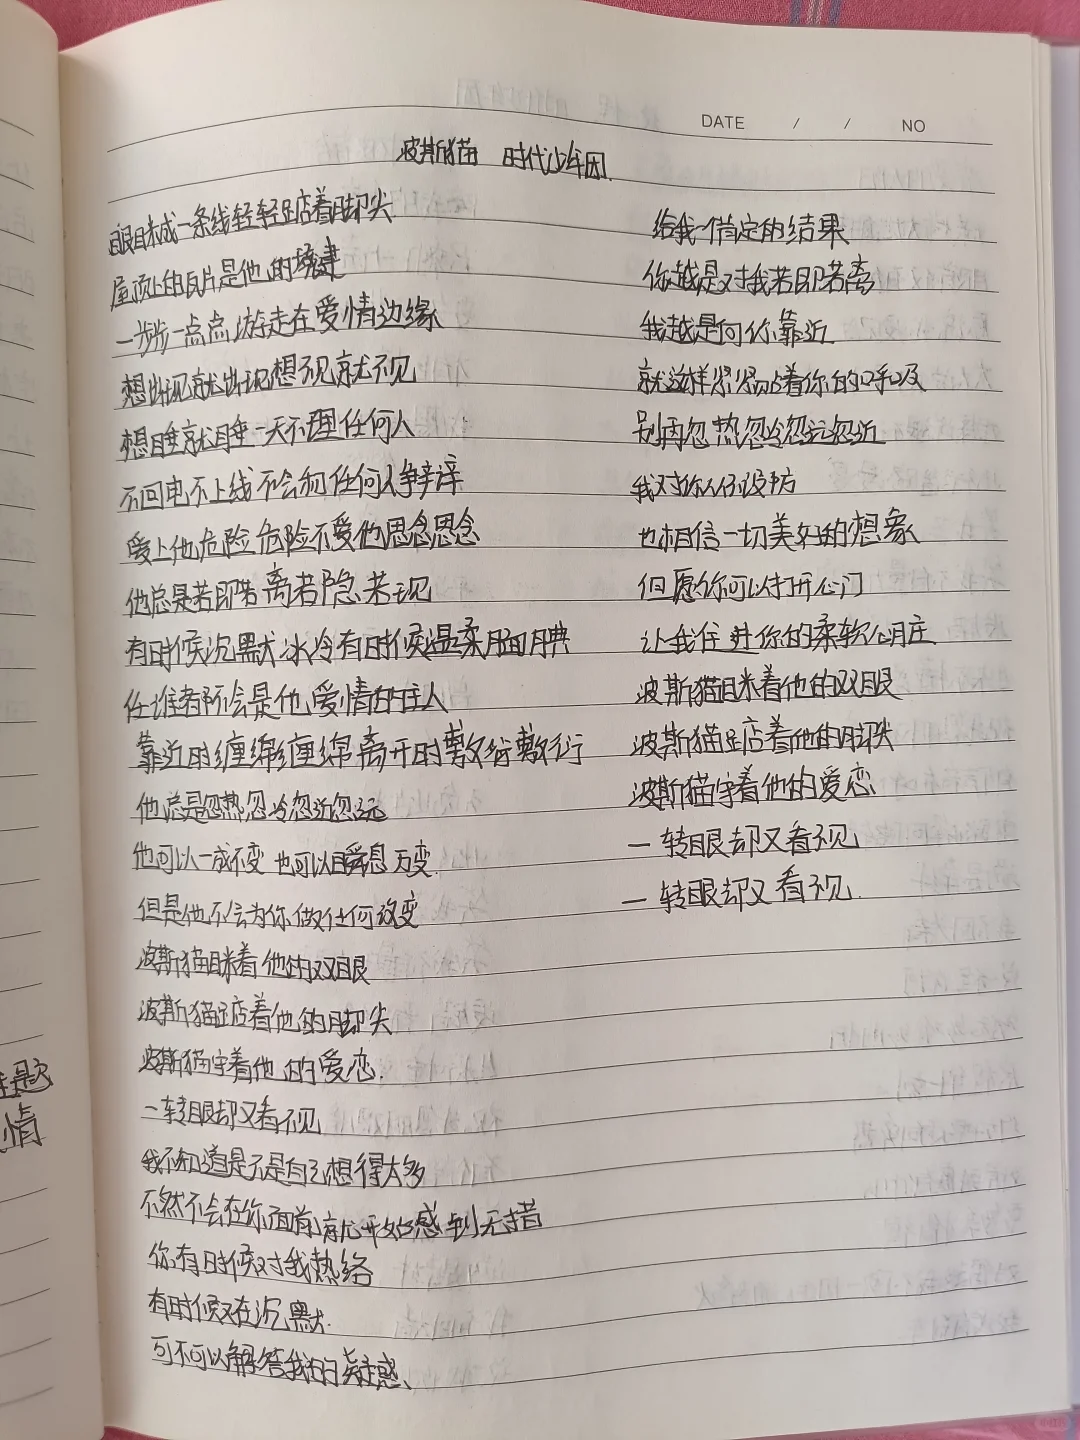 DATE / / NO
波斯猫 时代少年团
眼眯成一条线轻轻踮着脚尖
屋顶上的瓦片是他的琴键
一步步一点点游走在爱情边缘
想出现就出现想不见就不见
想睡就睡一天不理任何人
不回电不上线不会和任何人争辩
爱上他危险危险不爱他思念思念
他总是若即若离若隐若现
有时候沉默冰冷有时候温柔腼腆
任谁都不会是他爱情的主人
靠近时缠绵缠绵离开时敷衍敷衍
他总是忽热忽冷忽近忽远
他可以一成不变 也可以瞬息万变.
但是他不会为你做任何改变
波斯猫眯着他的双眼
波斯猫踮着他的脚尖
波斯猫守着他的爱恋.
一转眼却又看不见
我不知道是不是自己想得太多
不然不会在你面前就开始感到无措
你有时候对我热络
有时候又在沉默.
可不可以解答我的疑惑、
给我一个肯定的结果
你越是对我若即若离
我越是向你靠近
就这样紧紧贴着你的呼吸
别再忽热忽冷忽远忽近
我对你从不设防
也相信一切美好的想象
但愿你可以打开心门
让我住进你的柔软心房
波斯猫眯着他的双眼
波斯猫踮着他的脚尖
波斯猫守着他的爱恋
一转眼却又看不见
一转眼却又看不见.
主题
情